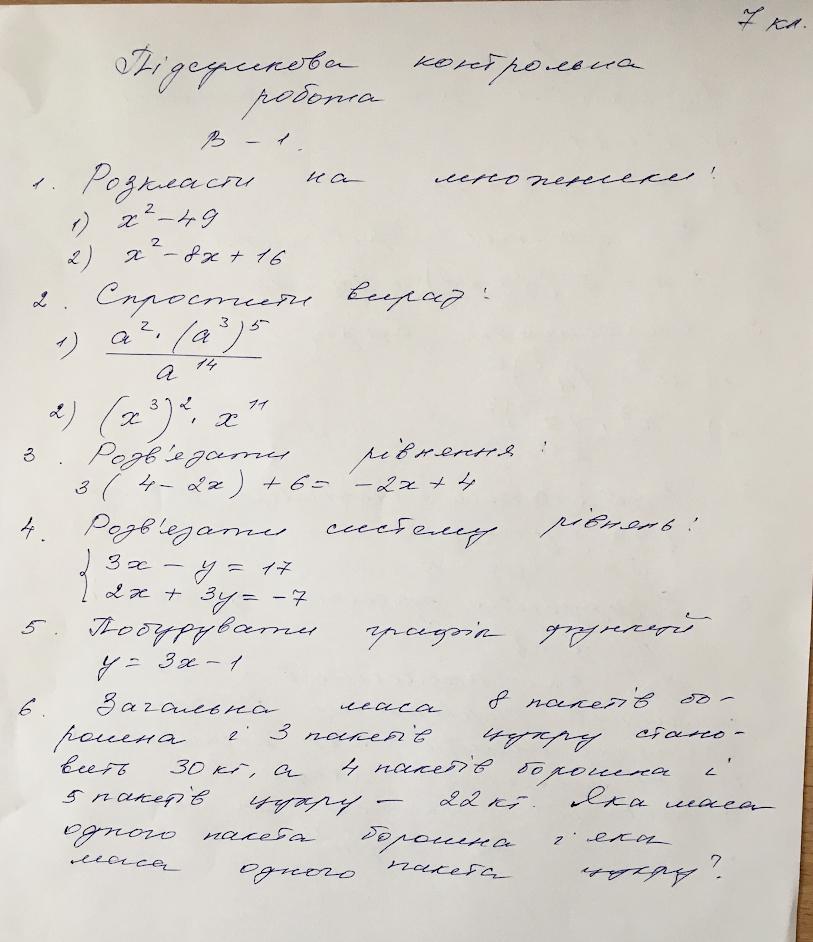 7 кл.
Підсумкова контрольна
робота
В - 1.
1. Розкласти на множники:
1) x² - 49
2) x² - 8x + 16
2. Спростити вираз:
1) a² · (a³)⁵ / a¹⁴
2) (x³)² · x¹¹
3. Розв'язати рівняння:
3 (4 - 2x) + 6 = -2x + 4
4. Розв'язати систему рівнянь:
{ 3x - y = 17
2x + 3y = -7
5. Побудувати графік функції
y = 3x - 1
6. Загальна маса 8 пакетів бо-
рошна і 3 пакетів цукру стано-
вить 30 кг, а 4 пакетів борошна і
5 пакетів цукру - 22 кг. Яка маса
одного пакета борошна і яка
маса одного пакета цукру?